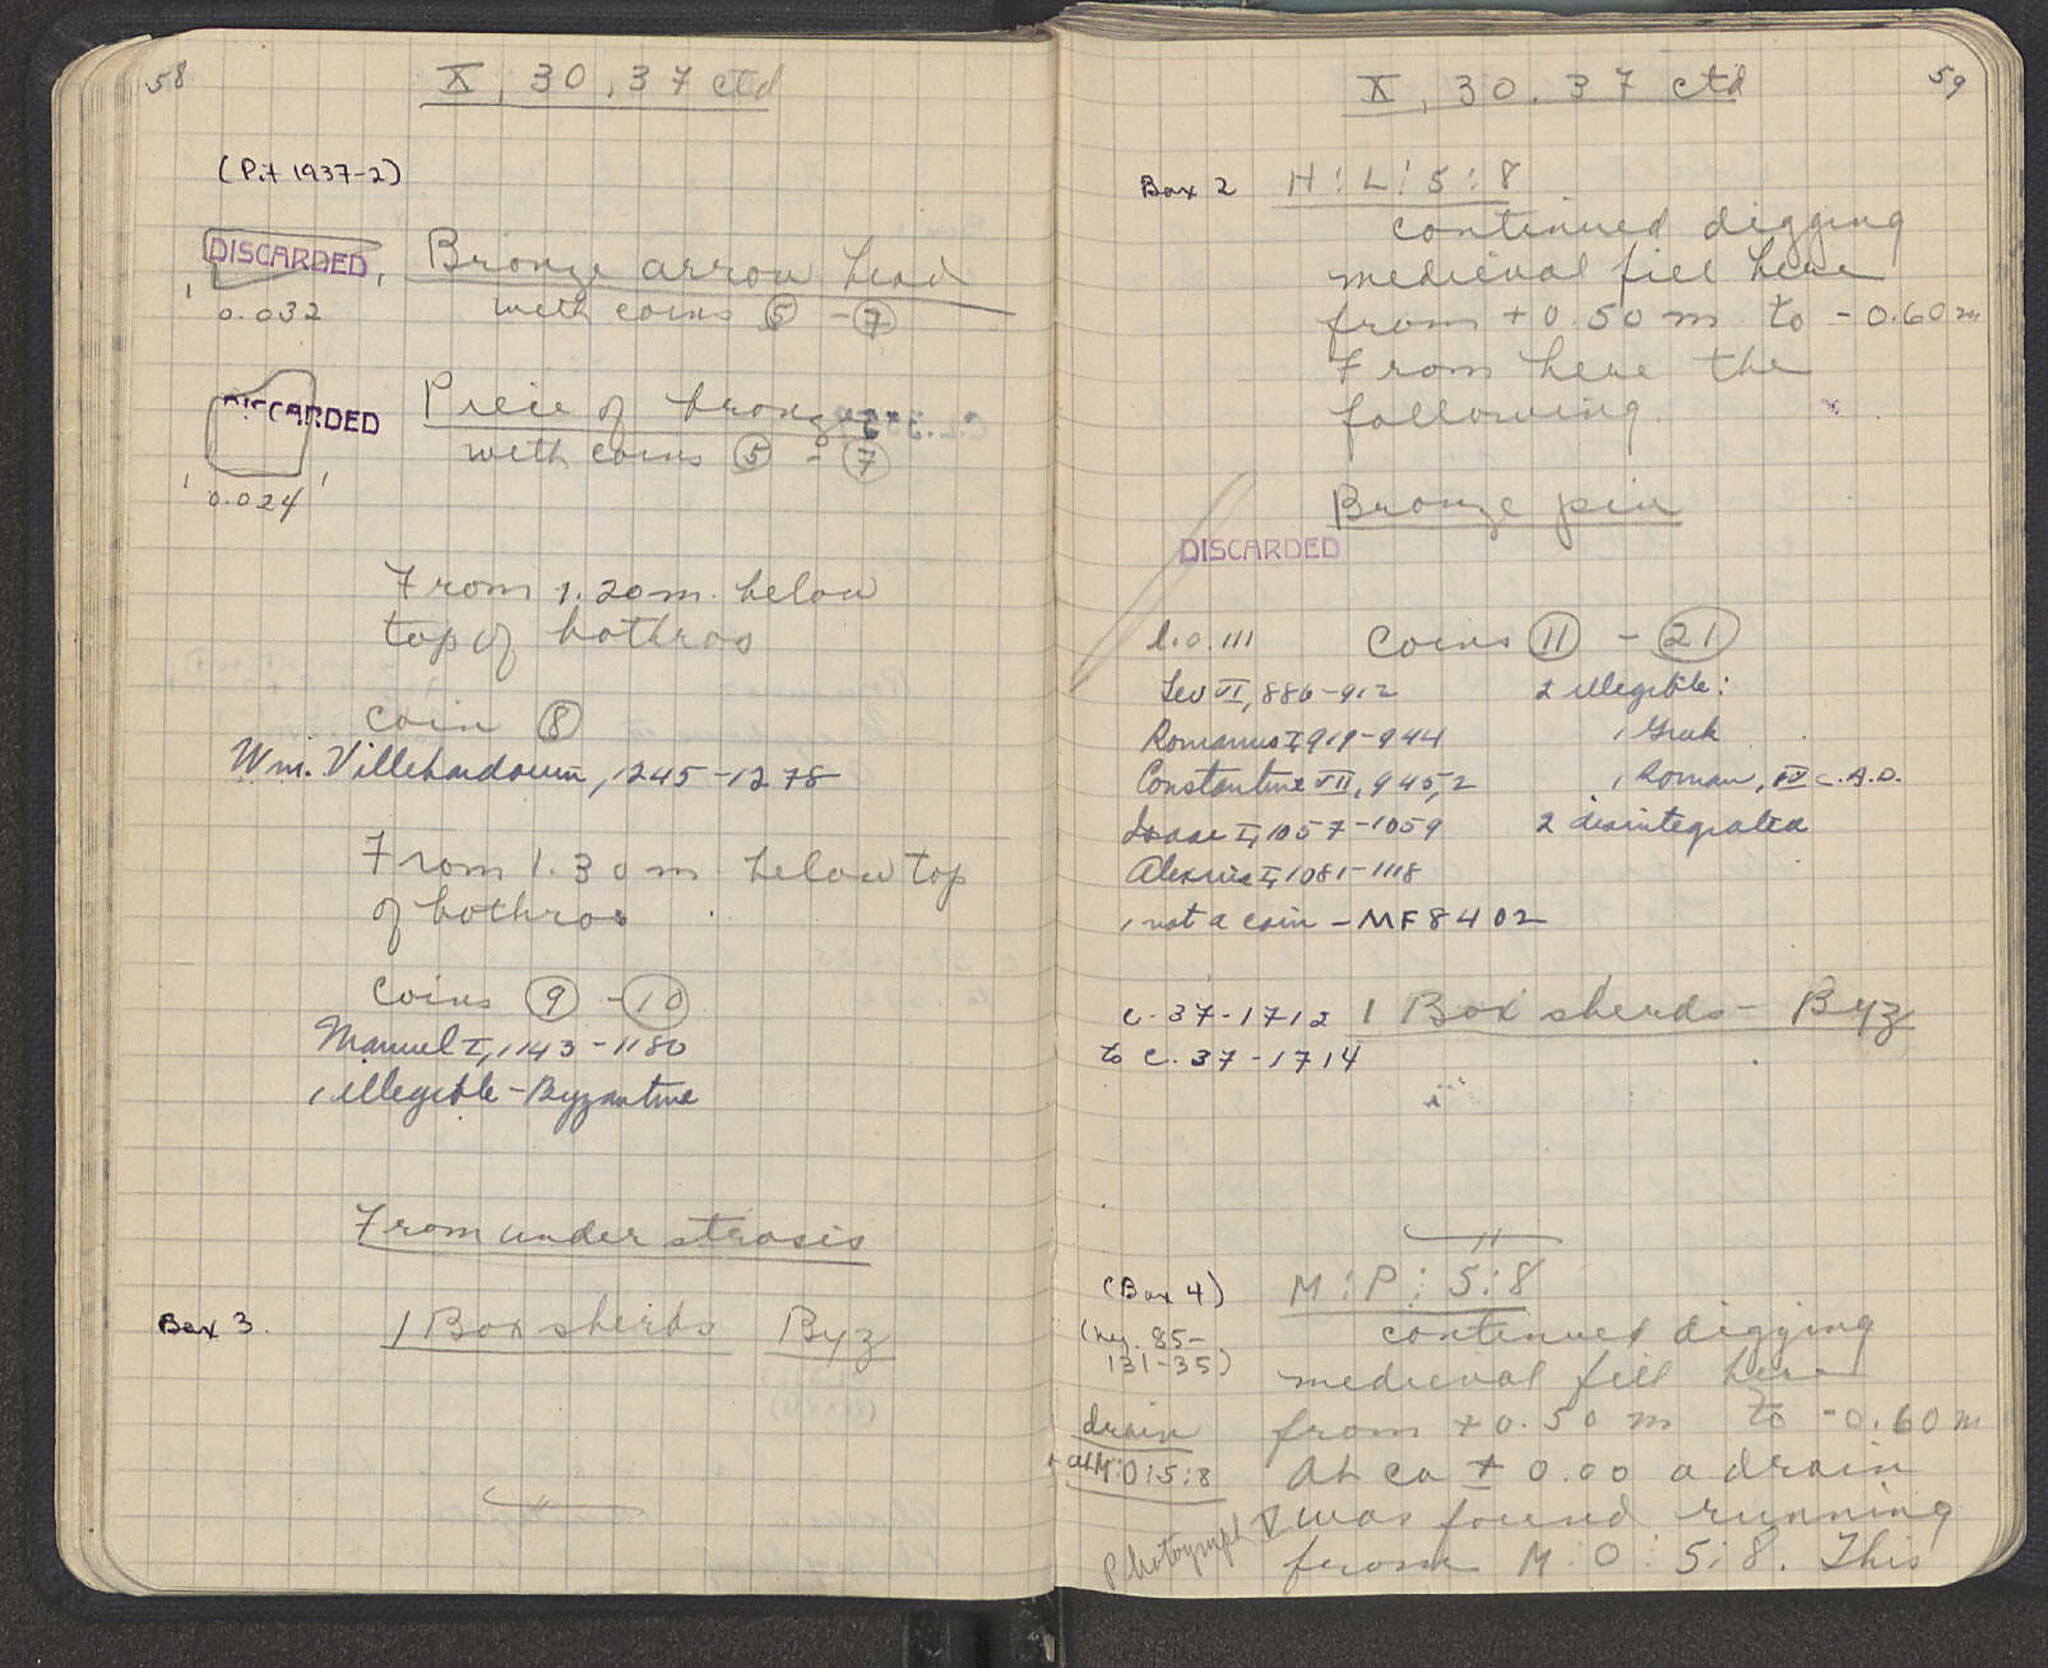 58
X, 30, 37 ctd
(Pit 1937-2)
DISCARDED
Bronze arrow head
0.032
with coins 5 - 7
DISCARDED
Piece of bronze
with coins 5 - 7
0.024
From 1.20 m. below
top of bothros
Coin 8
Wm. Villehardouin, 1245-1278
From 1.30 m below top
of bothros
Coins 9 - 10
Manuel I, 1143-1180
1 illegible - Byzantine
From under strosis
Box 3.
1 Box sherds Byz
59
X, 30. 37 ctd
Box 2 H:L:5:8
continued digging
medieval fill here
from +0.50 m to -0.60 m
From here the
following.
Bronze pin
DISCARDED
l.o.111 Coins 11 - 21
Leo VI, 886-912 2 illegible:
Romanus I, 919-944 1 Greek
Constantine VII, 945, 2 1 Roman, IV c. A.D.
Isaac I, 1057-1059 2 disintegrated
Alexius I, 1081-1118
1 not a coin - MF 8402
C-37-1712 1 Box sherds - Byz
to C-37-1714
(Box 4) M:P:5:8
continued digging
(neg. 85-
131-35)
medieval fill here
drain from +0.50 m to -0.60 m
at M:O:5:8 At ca ± 0.00 a drain
Photograph V was found running
from M:O:5:8. This